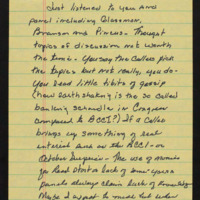 Just listened to you and
panel including Glassman,
Branson and Pincus. Thought
topics of discussion not worth
the time. You say the callers pick
the topics but not really, you do.
You read little bits of gossip
(how earthshaking is the so called
banking scandle in Congress
compared to BCCI?) If a caller
brings up something of real
interest such as the BCCI - or
October Surprise - The use of
panels always claim lack of knowledge
Maybe I expect to much but when